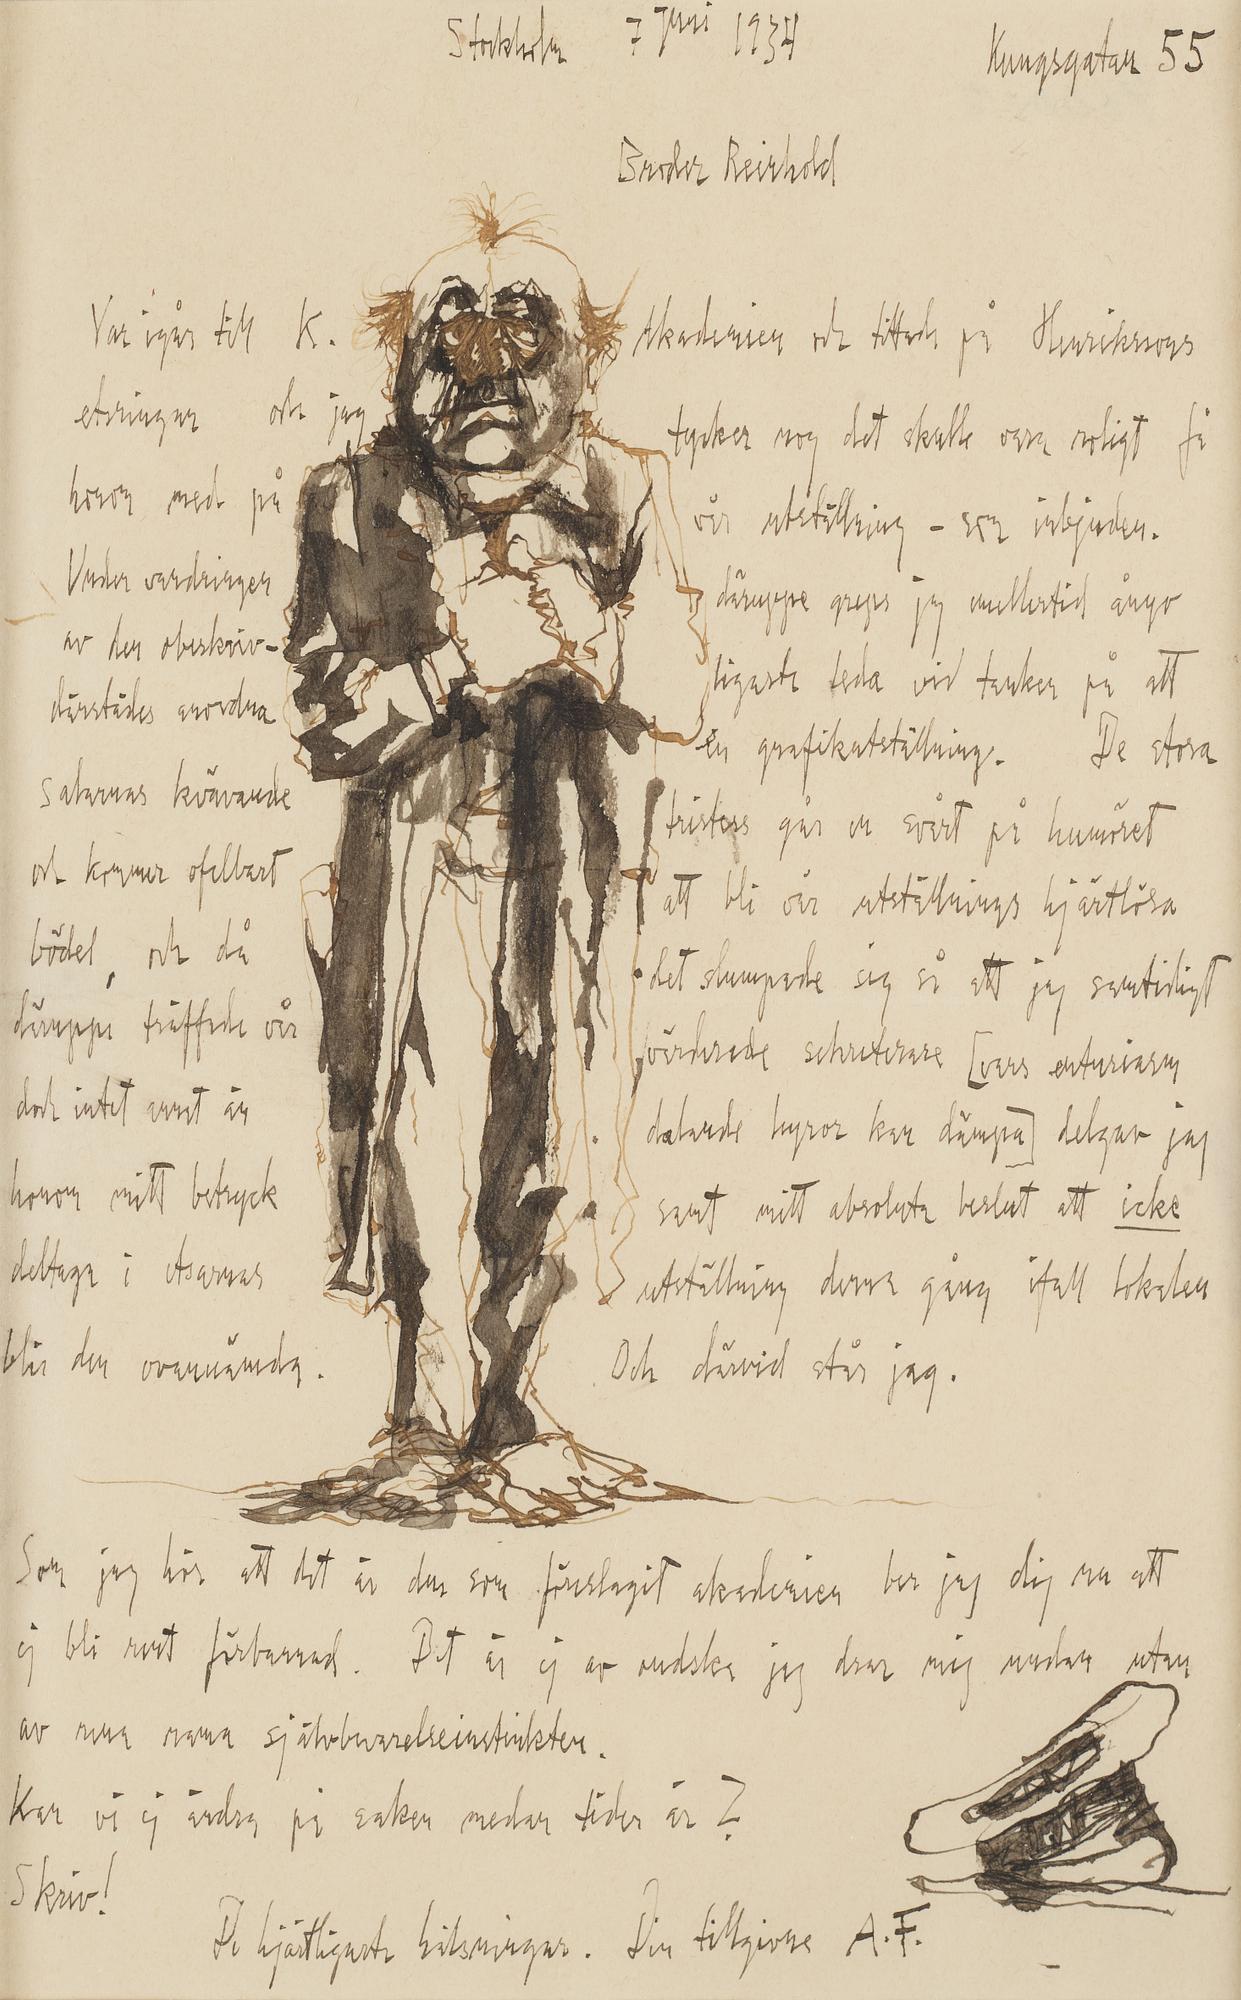 Stockholm 7 Juni 1934 Kungsgatan 55
Broder Reinhold
Var igår till K. Akademien och tittade på Henriksons
etsningar och jag tycker nog det skulle vara roligt få
honom med på vår utställning – som inbjuden.
Under vandringen däruppe greps jag emellertid ånyo
av den obeskriv-ligaste leda vid tanken på att
därstädes anordna en grafikutställning. De stora
salarnas kvävande tristess går en svårt på humöret
och kommer ofelbart att bli vår utställnings hjärtlösa
bödel, och då det slumpade sig så att jag samtidigt
däruppe träffade vår värderade sekreterare [vars entusiasm
dock intet annat än dalande hyror kan dämpa] delgav jag
honom mitt betryck samt mitt absoluta beslut att icke
deltaga i etsarnas utställning denna gång ifall lokalen
blir den ovannämda. Och därvid står jag.
Som jag hör att det är du som föreslagit akademien ber jag dig nu att
ej bli rent förbannad. Det är ej av ondska jag drar mig undan utan
av rena rama självbevarelseinstinkten.
Kan vi ej ändra på saken medan tiden är?
Skriv!
De hjärtligaste hälsningar. Din tillgivne A.F.